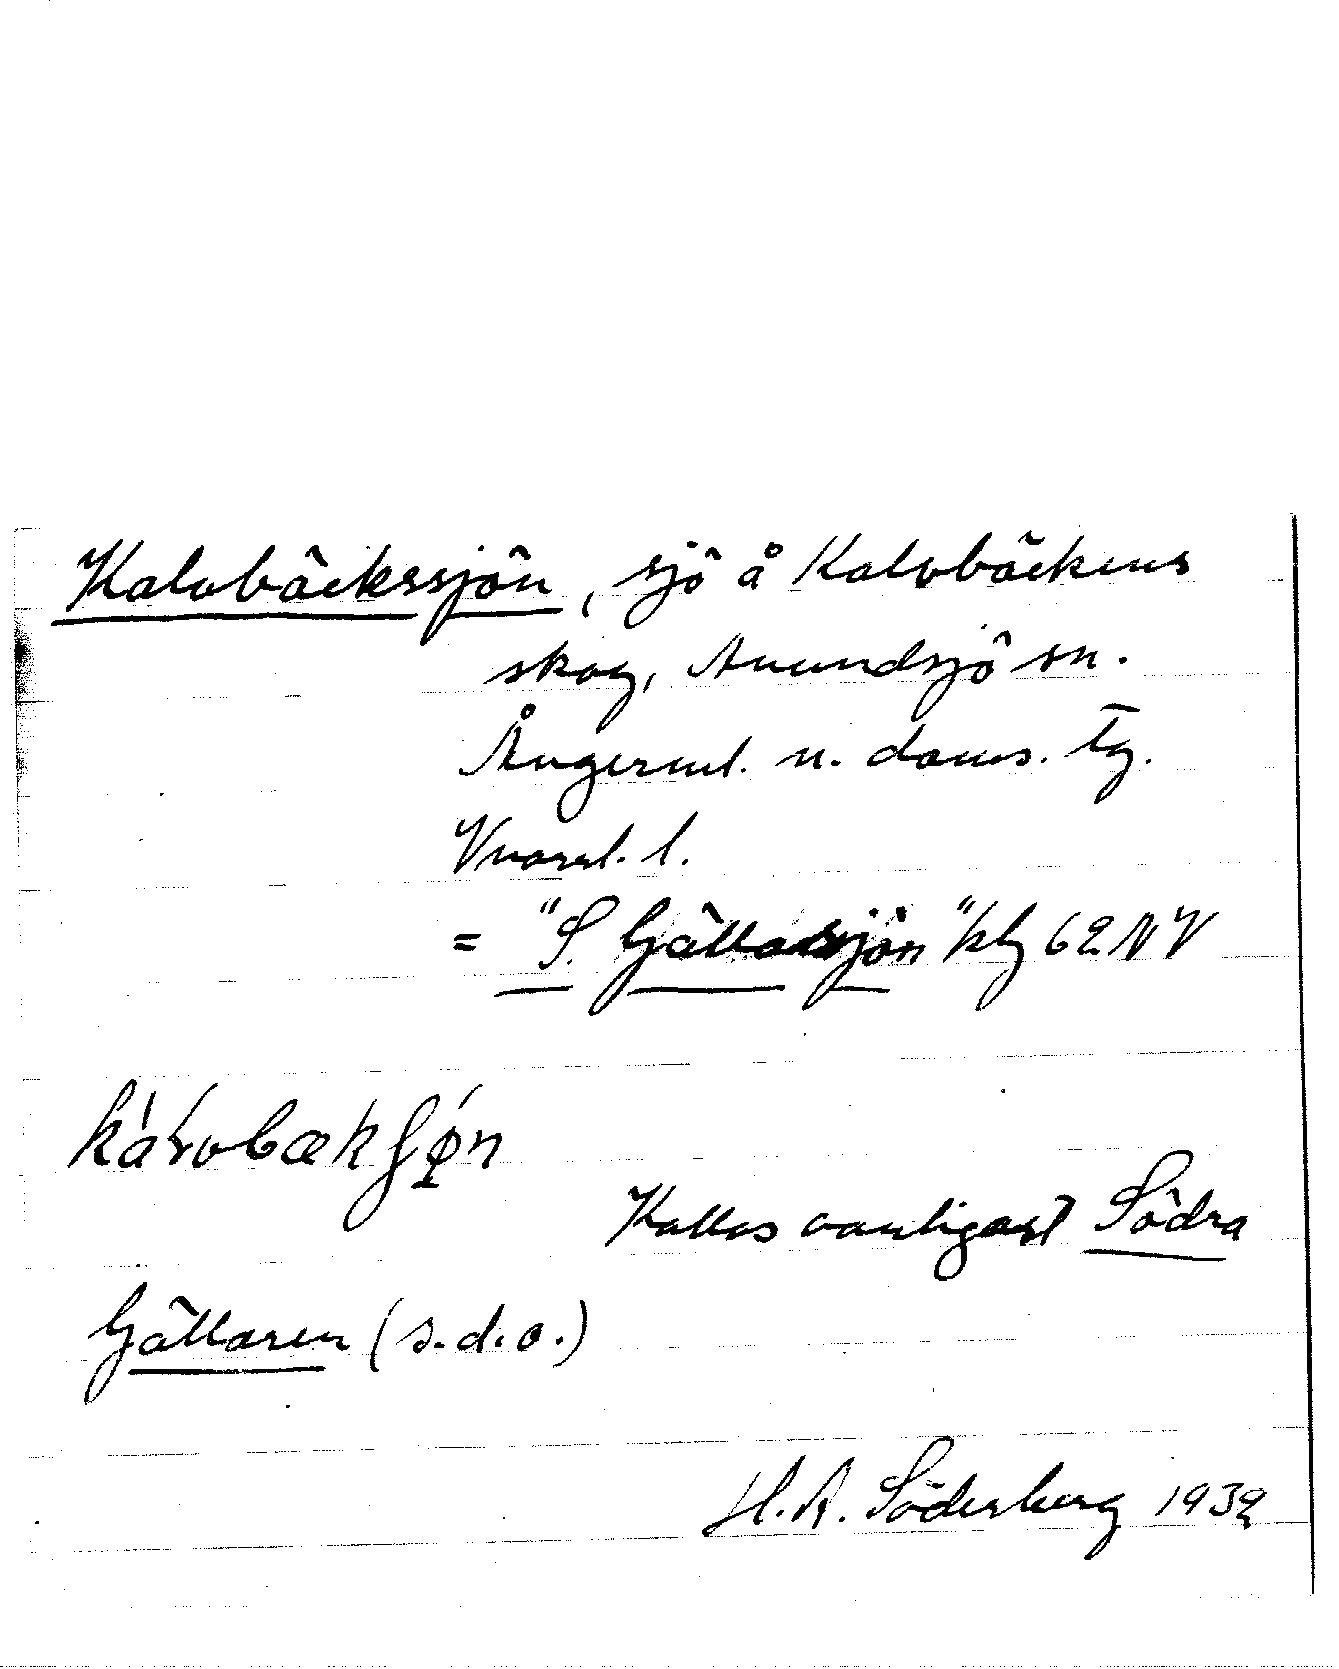 Kalvbäckssjön, sjö å Kalvbäckens
skog, Anundsjö sn.
Ångerml. n. doms. tg.
l.
= "S. Gällasjön" kbl 62 NV
Kallas vanligast Södra
Gällaren (s.d.o.)
H.A. Söderberg 1939